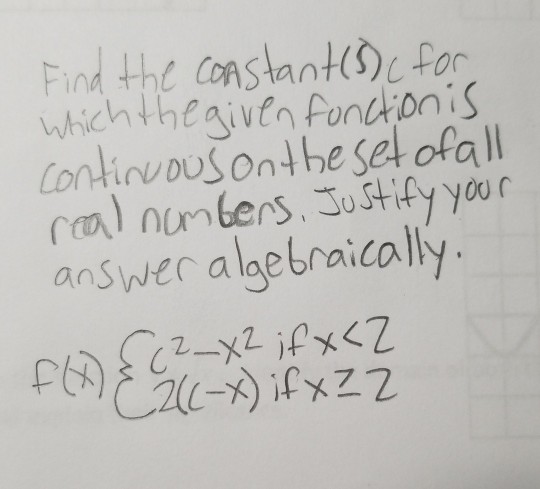 Find the constant(s) c for
which the given function is
continuous on the set of all
real numbers. Justify your
answer algebraically.
f(x) { c²-x² if x<2
2(c-x) if x≥2